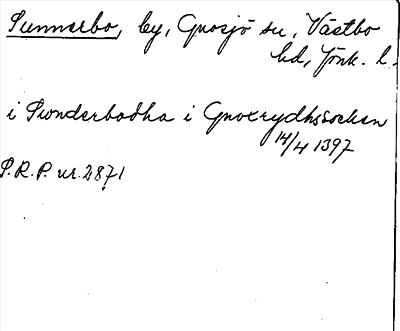 Sunnerbo, by, Gnosjö sn, Västbo
hd, Jönk. l.
i Swnderbodha i Gnoxrydhssoken
14/4 1397
S.R.P. nr. 2871